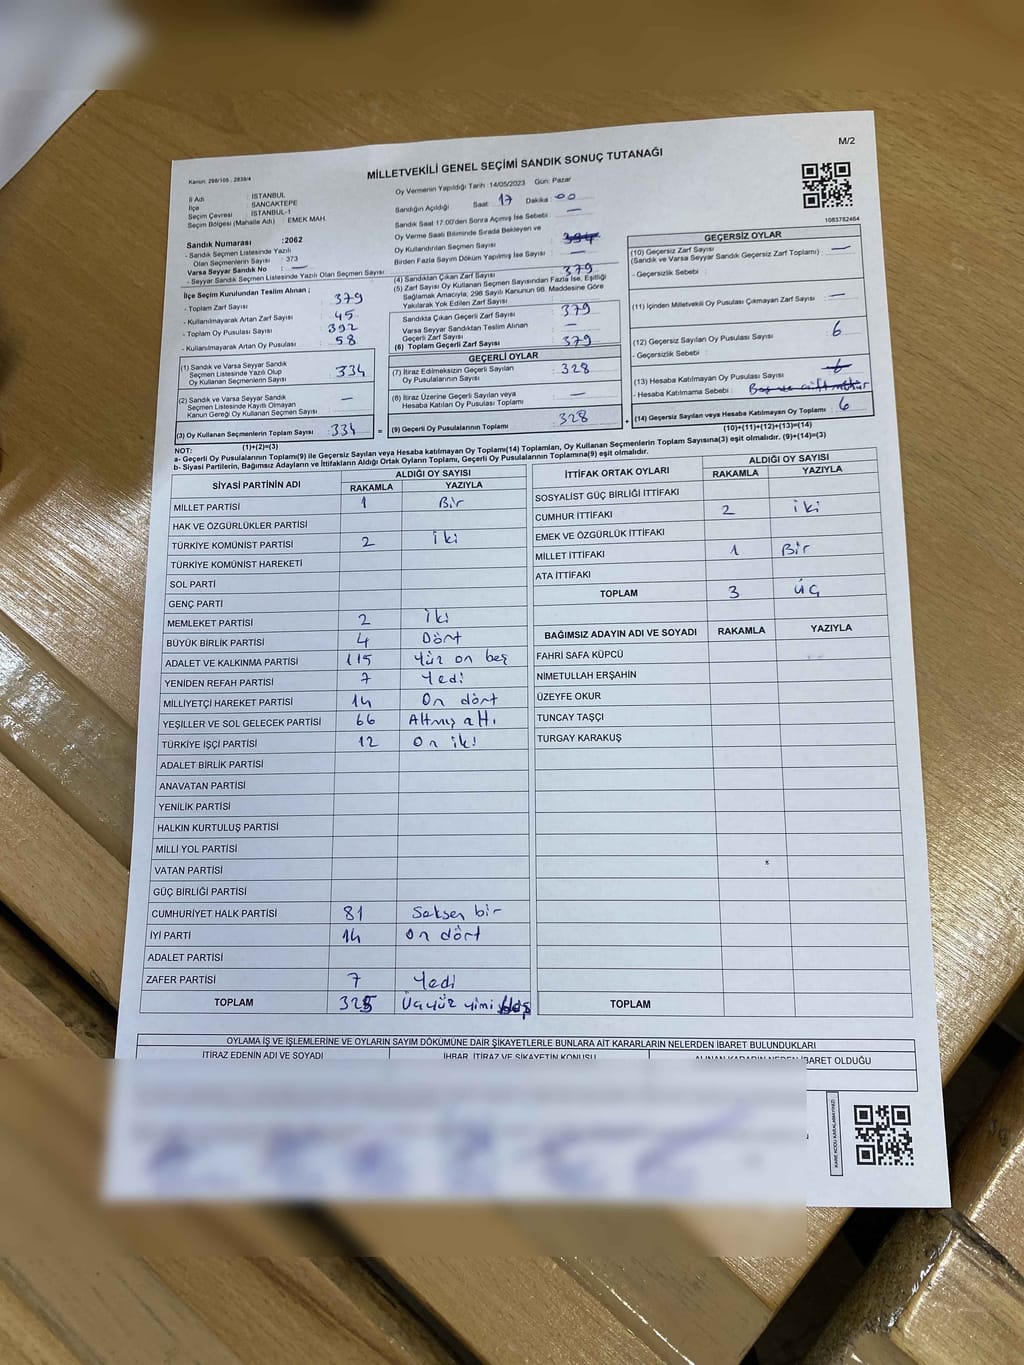 M/2
Kanun: 298/105 , 2839/4
MİLLETVEKİLİ GENEL SEÇİMİ SANDIK SONUÇ TUTANAĞI
1083782464
İl Adı : İSTANBUL
İlçe : SANCAKTEPE
Seçim Çevresi : İSTANBUL-1
Seçim Bölgesi (Mahalle Adı) : EMEK MAH.
Sandık Numarası :2062
- Sandık Seçmen Listesinde Yazılı
Olan Seçmenlerin Sayısı : 373
Varsa Seyyar Sandık No : —
- Seyyar Sandık Seçmen Listesinde Yazılı Olan Seçmen Sayısı
İlçe Seçim Kurulundan Teslim Alınan ;
- Toplam Zarf Sayısı : 379
- Kullanılmayarak Artan Zarf Sayısı : 45
- Toplam Oy Pusulası Sayısı : 392
- Kullanılmayarak Artan Oy Pusulası : 58
(1) Sandık ve Varsa Seyyar Sandık
Seçmen Listesinde Yazılı Olup
Oy Kullanan Seçmenlerin Sayısı : 334
(2) Sandık ve Varsa Seyyar Sandık
Seçmen Listesinde Kayıtlı Olmayan
Kanun Gereği Oy Kullanan Seçmen Sayısı : —
(3) Oy Kullanan Seçmenlerin Toplam Sayısı : 334
(1)+(2)=(3)
Oy Vermenin Yapıldığı Tarih :14/05/2023 Gün: Pazar
Sandığın Açıldığı Saat: 17 Dakika : 00
Sandık Saat 17:00'den Sonra Açımış İse Sebebi : —
Oy Verme Saati Bitiminde Sırada Bekleyen ve
Oy Kullandırılan Seçmen Sayısı
Birden Fazla Sayım Döküm Yapılmış İse Sayısı : —
(4) Sandıktan Çıkan Zarf Sayısı : 379
(5) Zarf Sayısı Oy Kullanan Seçmen Sayısından Fazla İse, Eşitliği
Sağlamak Amacıyla; 298 Sayılı Kanunun 98. Maddesine Göre
Yakılarak Yok Edilen Zarf Sayısı
Sandıkta Çıkan Geçerli Zarf Sayısı : 379
Varsa Seyyar Sandıktan Teslim Alınan
Geçerli Zarf Sayısı : —
(6) Toplam Geçerli Zarf Sayısı : 379
GEÇERLİ OYLAR
(7) İtiraz Edilmeksizin Geçerli Sayılan
Oy Pusulalarının Sayısı : 328
(8) İtiraz Üzerine Geçerli Sayılan veya
Hesaba Katılan Oy Pusulası Toplamı : —
= (9) Geçerli Oy Pusulalarının Toplamı : 328
GEÇERSİZ OYLAR
(10) Geçersiz Zarf Sayısı
(Sandık ve Varsa Seyyar Sandık Geçersiz Zarf Toplamı) : —
- Geçersizlik Sebebi :
(11) İçinden Milletvekili Oy Pusulası Çıkmayan Zarf Sayısı : —
(12) Geçersiz Sayılan Oy Pusulası Sayısı : 6
- Geçersizlik Sebebi :
(13) Hesaba Katılmayan Oy Pusulası Sayısı
- Hesaba Katılmama Sebebi :
+ (14) Geçersiz Sayılan veya Hesaba Katılmayan Oy Toplamı : 6
(10)+(11)+(12)+(13)=(14)
NOT:
a- Geçerli Oy Pusulalarının Toplamı(9) ile Geçersiz Sayılan veya Hesaba katılmayan Oy Toplamı(14) Toplamları, Oy Kullanan Seçmenlerin Toplam Sayısına(3) eşit olmalıdır. (9)+(14)=(3)
b- Siyasi Partilerin, Bağımsız Adayların ve İttifakların Aldığı Ortak Oyların Toplamı, Geçerli Oy Pusulalarının Toplamına(9) eşit olmalıdır.
SİYASİ PARTİNİN ADI ALDIĞI OY SAYISI
RAKAMLA YAZIYLA
MİLLET PARTİSİ 1 Bir
HAK VE ÖZGÜRLÜKLER PARTİSİ
TÜRKİYE KOMÜNİST PARTİSİ 2 İki
TÜRKİYE KOMÜNİST HAREKETİ
SOL PARTİ
GENÇ PARTİ
MEMLEKET PARTİSİ 2 İki
BÜYÜK BİRLİK PARTİSİ 4 Dört
ADALET VE KALKINMA PARTİSİ 115 Yüz on beş
YENİDEN REFAH PARTİSİ 7 Yedi
MİLLİYETÇİ HAREKET PARTİSİ 14 On dört
YEŞİLLER VE SOL GELECEK PARTİSİ 66 Altmış altı
TÜRKİYE İŞÇİ PARTİSİ 12 On iki
ADALET BİRLİK PARTİSİ
ANAVATAN PARTİSİ
YENİLİK PARTİSİ
HALKIN KURTULUŞ PARTİSİ
MİLLİ YOL PARTİSİ
VATAN PARTİSİ
GÜÇ BİRLİĞİ PARTİSİ
CUMHURİYET HALK PARTİSİ 81 Seksen bir
İYİ PARTİ 14 On dört
ADALET PARTİSİ
ZAFER PARTİSİ 7 Yedi
TOPLAM 325 Üçyüz yimi
İTTİFAK ORTAK OYLARI ALDIĞI OY SAYISI
RAKAMLA YAZIYLA
SOSYALİST GÜÇ BİRLİĞİ İTTİFAKI
CUMHUR İTTİFAKI 2 iki
EMEK VE ÖZGÜRLÜK İTTİFAKI
MİLLET İTTİFAKI 1 Bir
ATA İTTİFAKI
TOPLAM 3 üç
BAĞIMSIZ ADAYIN ADI VE SOYADI RAKAMLA YAZIYLA
FAHRİ SAFA KÜPCÜ
NİMETULLAH ERŞAHİN
ÜZEYFE OKUR
TUNCAY TAŞÇI
TURGAY KARAKUŞ
TOPLAM
OYLAMA İŞ VE İŞLEMLERİNE VE OYLARIN SAYIM DÖKÜMÜNE DAİR ŞİKAYETLERLE BUNLARA AİT KARARLARIN NELERDEN İBARET BULUNDUKLARI
İTİRAZ EDENİN ADI VE SOYADI İHBAR, İTİRAZ VE ŞİKAYETİN KONUSU ALINAN KARARIN NEDEN İBARET OLDUĞU